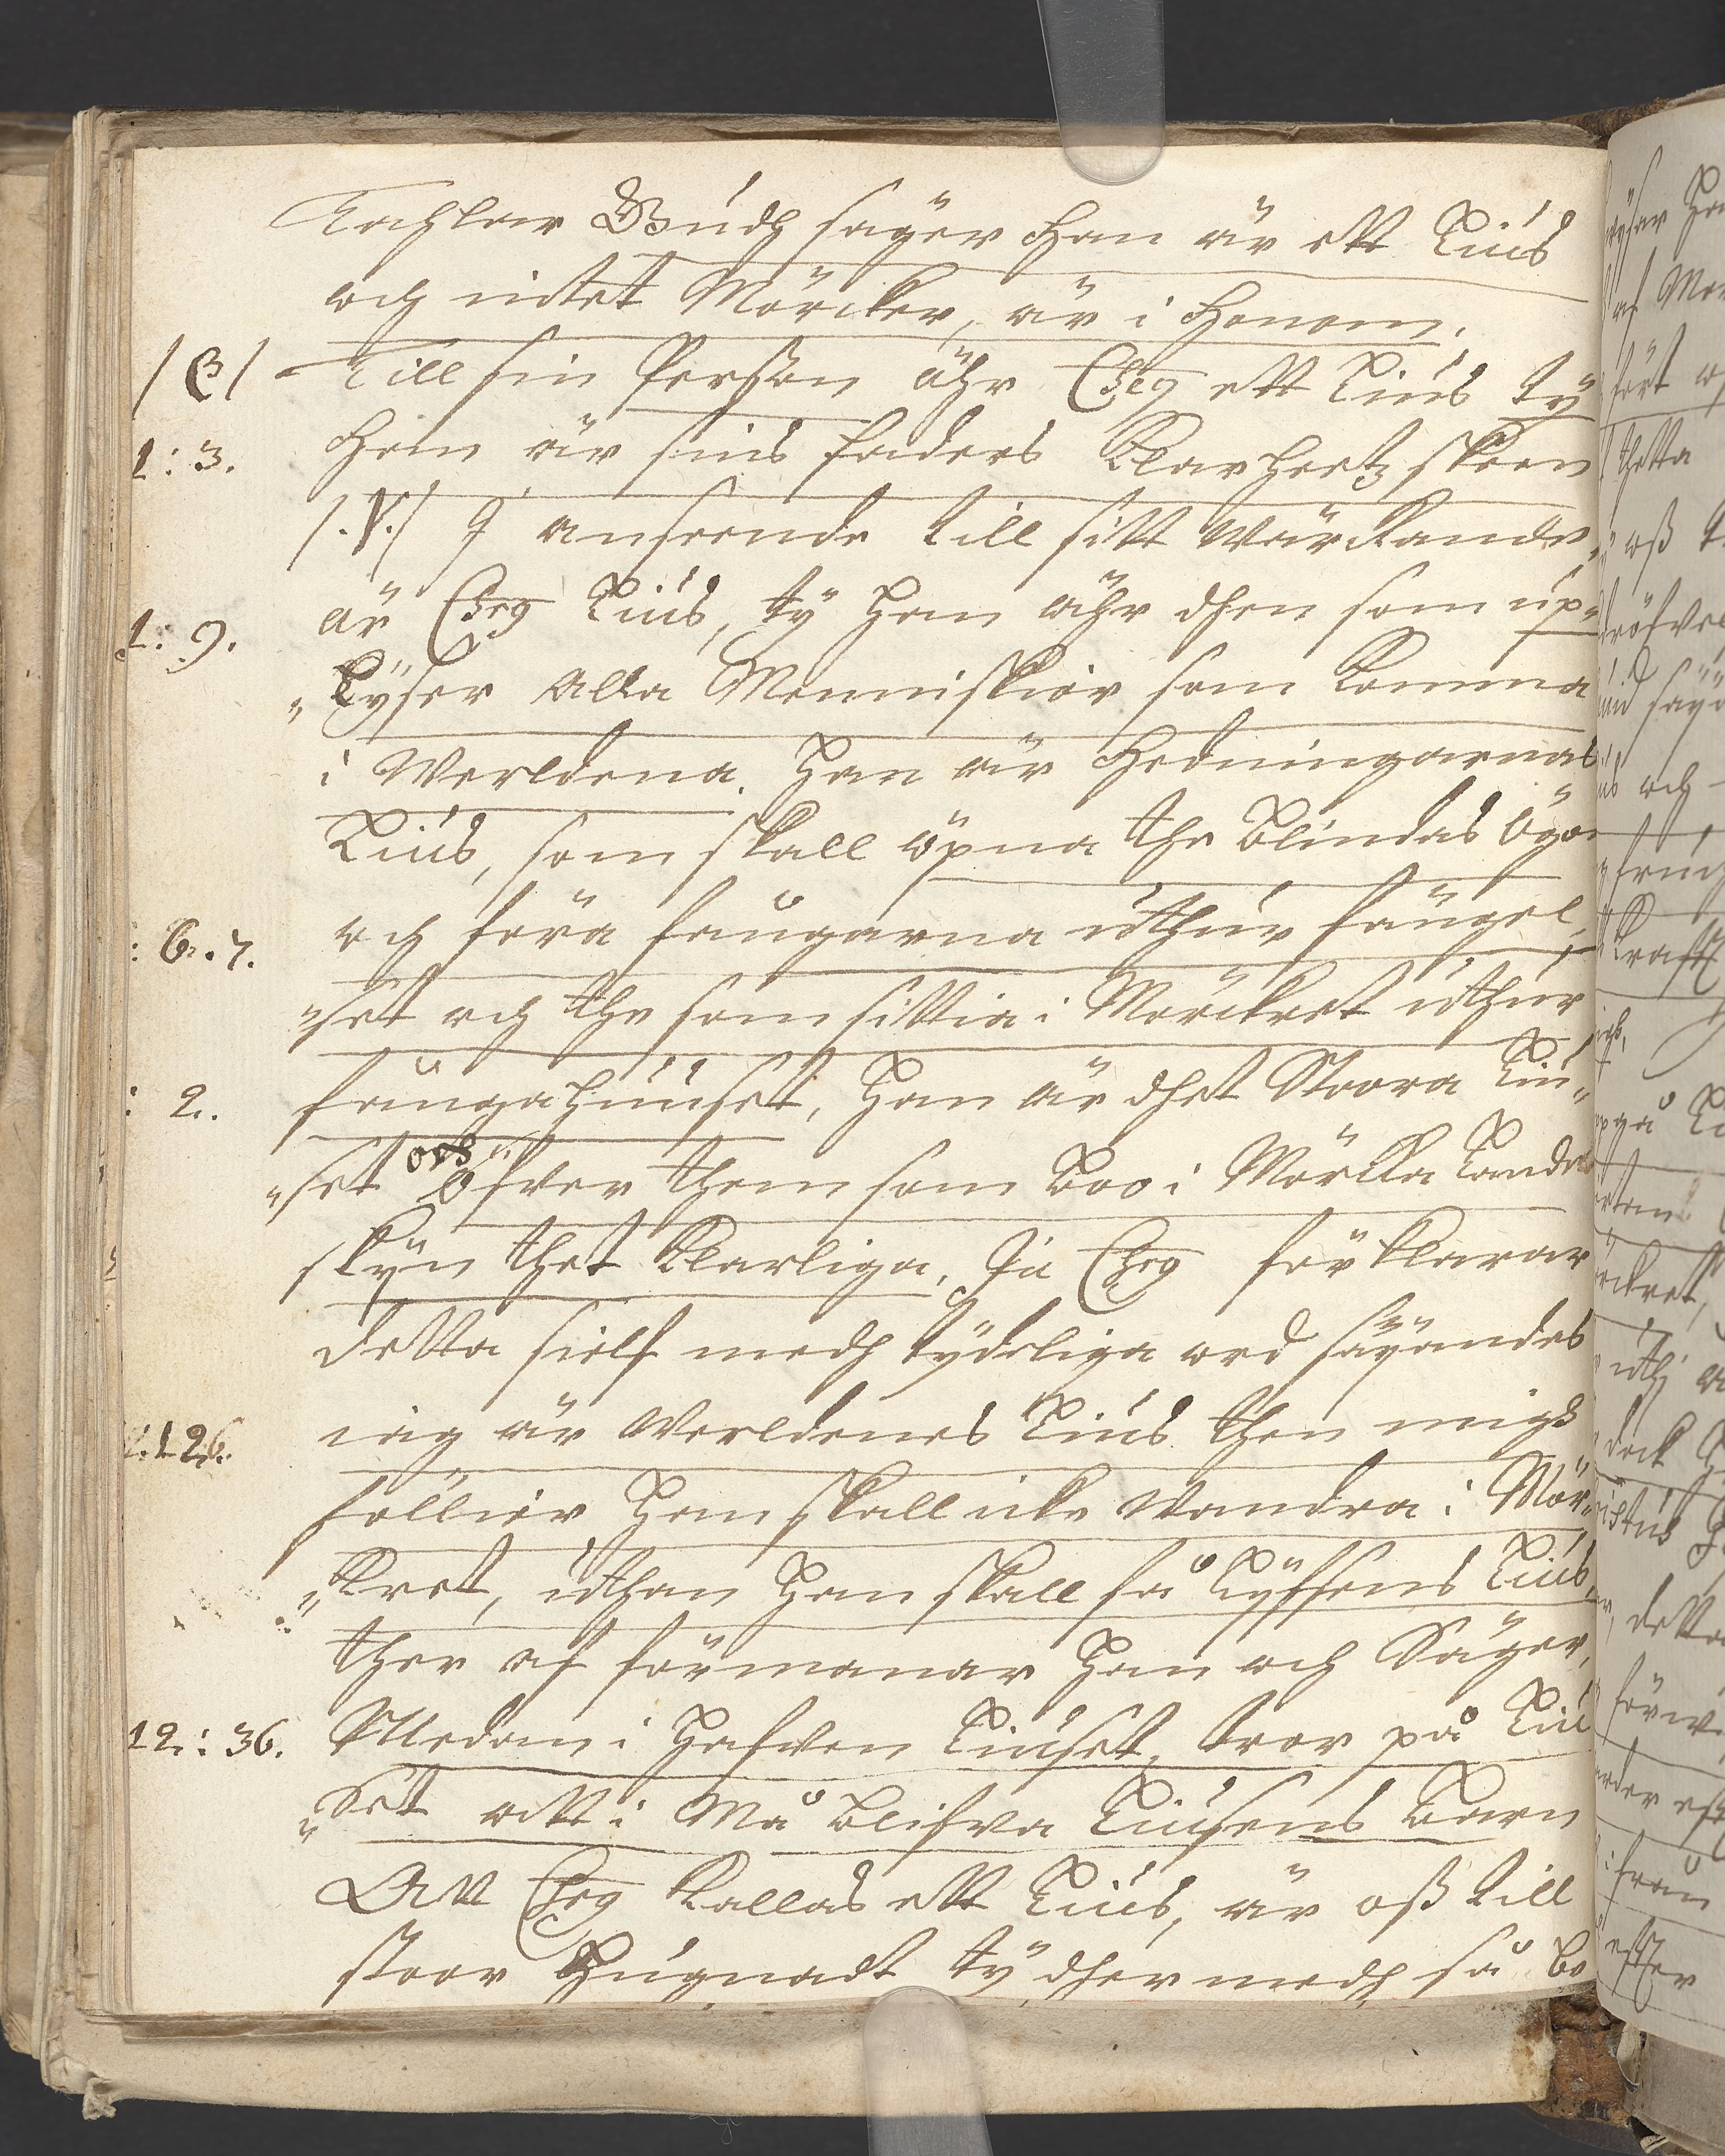 Kahlar Gudh säger Han är ett Liús
och intet Mörcker, är i Honom.
/β/ Till sin Person ähr Chrs ett Liús ty
1:3. Han är sins faders Klarheetz skeen
/.γ./ J anseende till sitt Wärckande,
är Chrs Liús, ty Han ähr dhen som úp„
1:9.
„Lyser alla Menniskior som komma
i Werldena. Han är Hedningarnas
Liús, som skall öpna the Blindas ögon
och föra fångarna úthúr fängel„
:6.7.
„set och the som sittia i Mörckret úthúr
fångahúúset, Han är dhet Stoora Liú„
:2.
„set öfver them som Boo i Mörkka Landet
skijn thet klarliga. Ja Chrs förklarar
detta sielf medh tydeliga ord säyandes
iag är Werldenes Liús then migh
:12.
föllier Han skall icke Wandra i Mör„
„kret, úthan Han skall få Lyffsens Liús,
ther af förmanar Han och Säger,
12:36. Medan i Hafven Liúset, troor på Liú
„Set att i Må blifva Liúsens Barn
Att Chrs kallas ett Liús, är oß till
stoor Húgnadt ty dhermedh få be